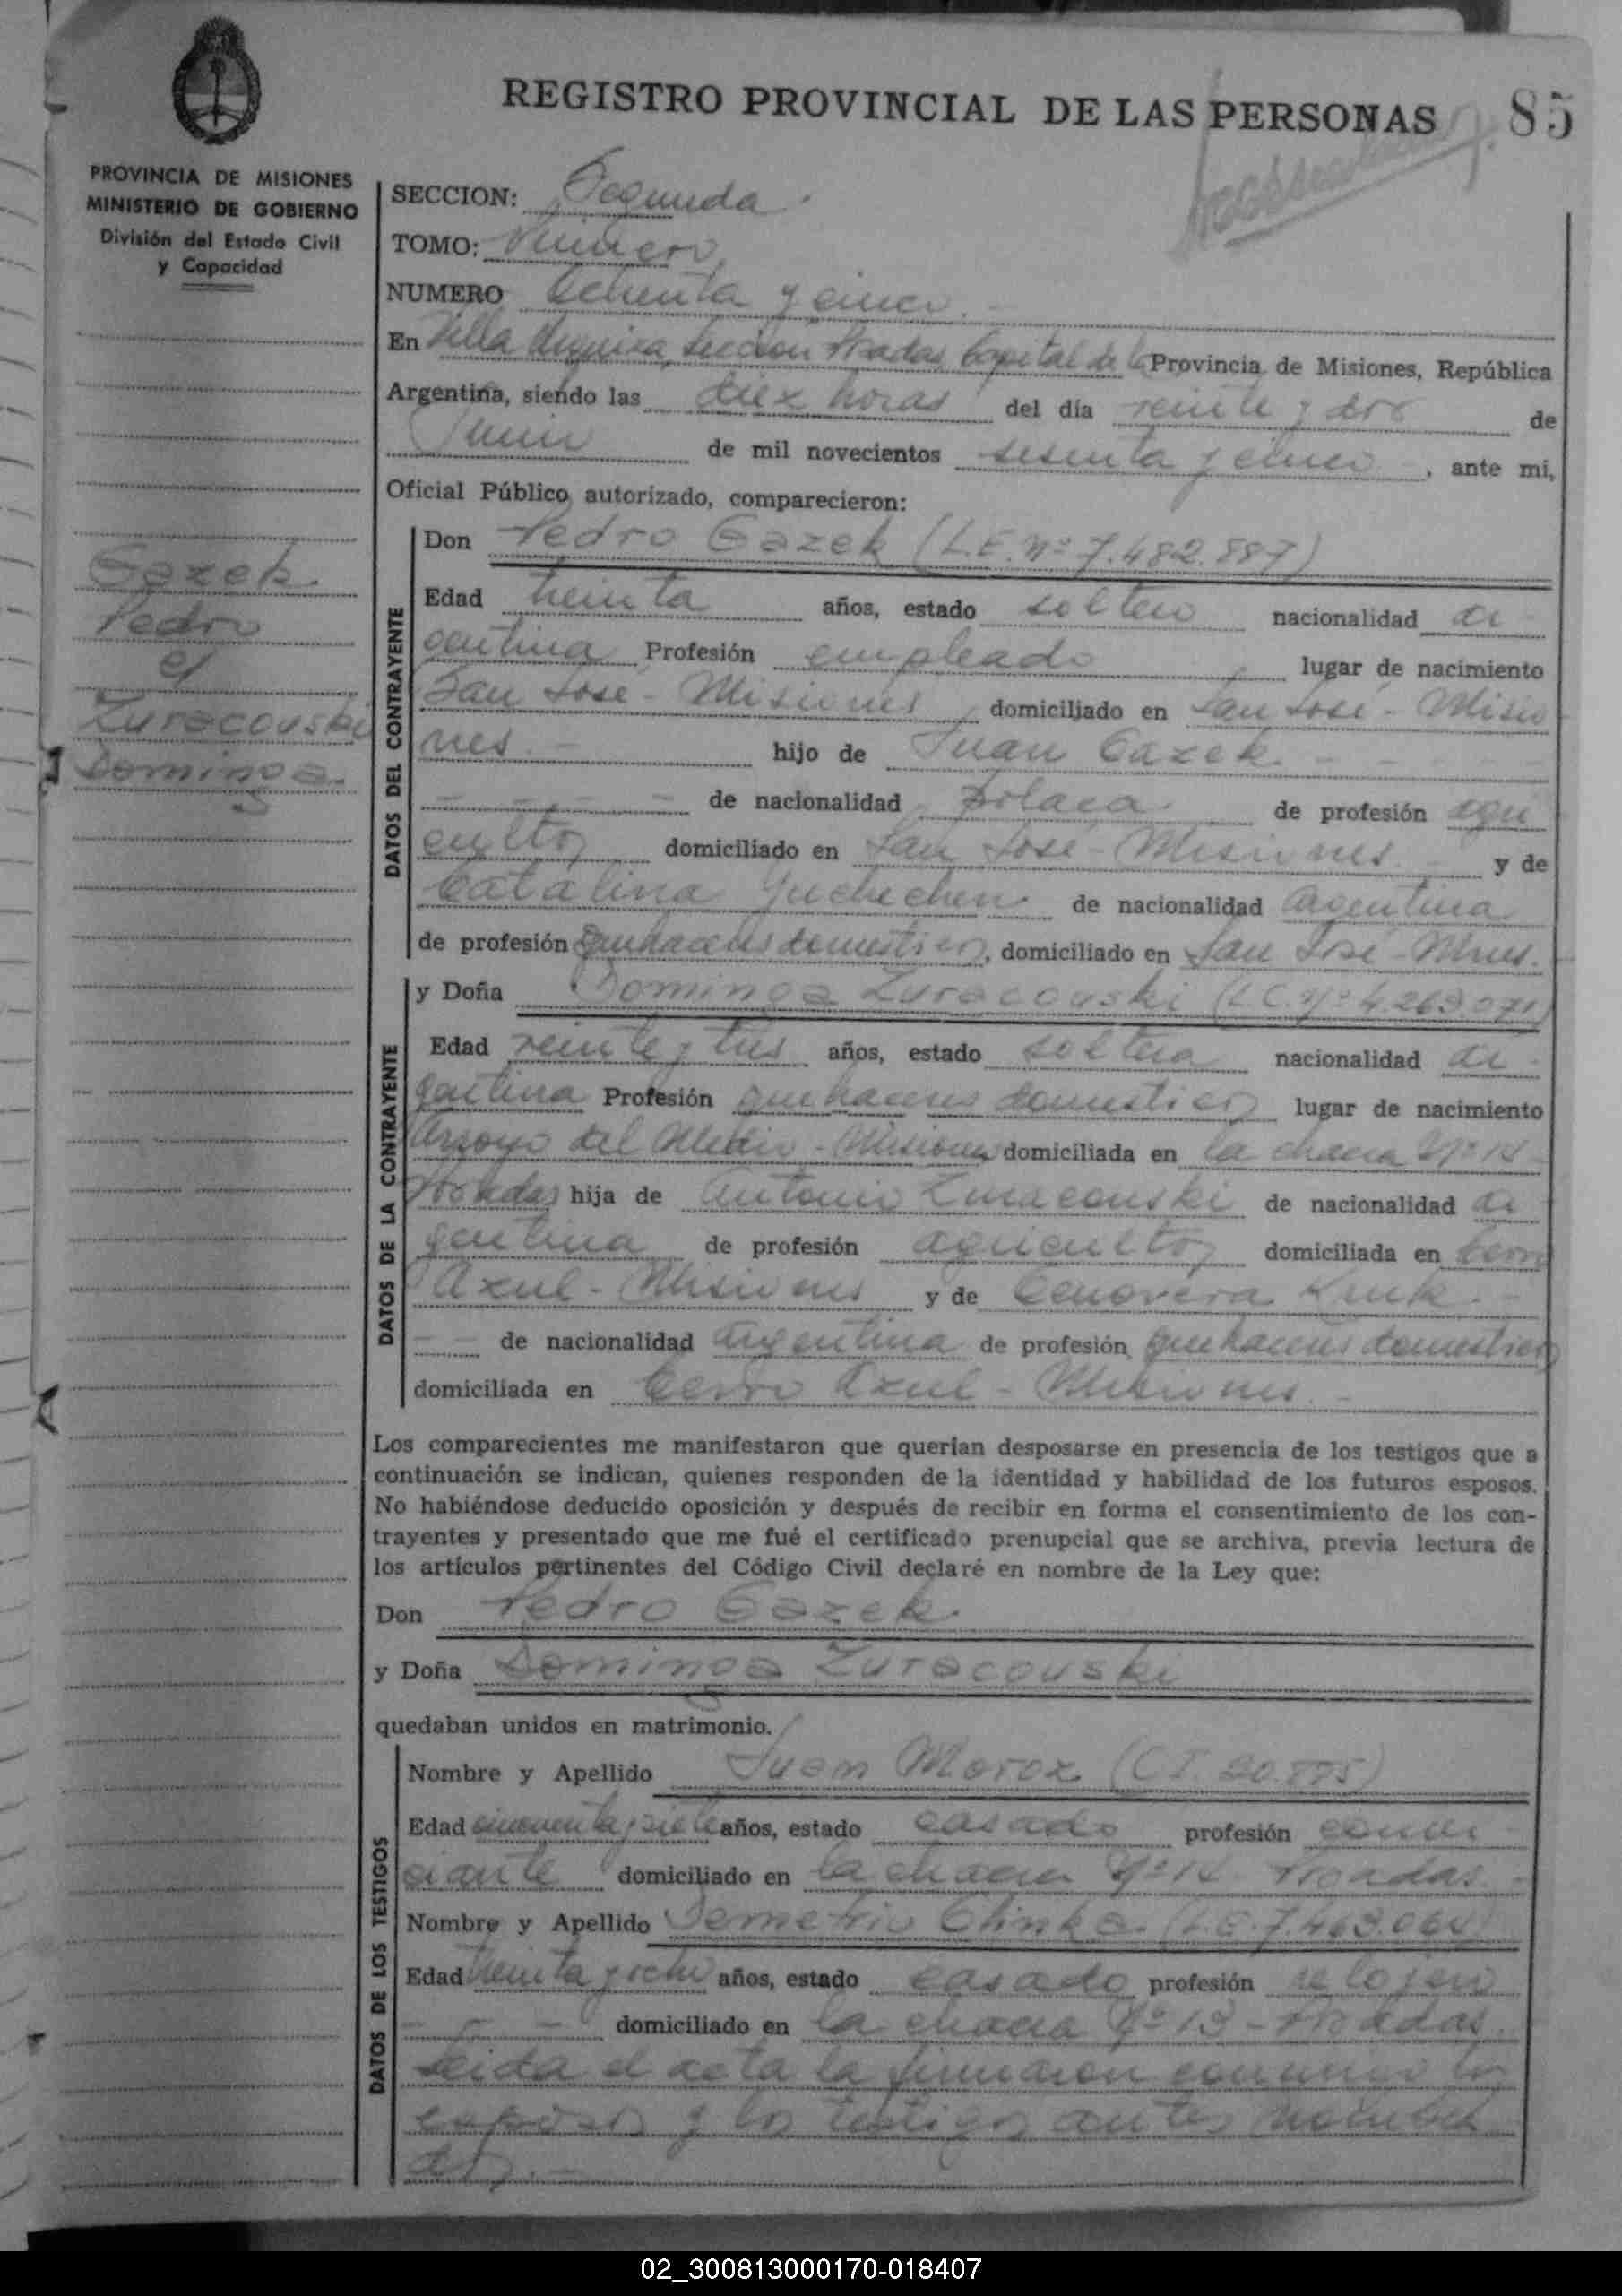 REGISTRO PROVINCIAL DE LAS PERSONAS 85
PROVINCIA DE MISIONES
MINISTERIO DE GOBIERNO
División del Estado Civil
y Capacidad
SECCION: Segunda
TOMO: Primero
NUMERO Ochenta y cinco
En Villa Urquiza, Sección Posadas Capital de la Provincia de Misiones, República
Argentina, siendo las diez horas del día veinte y dos de
Junio de mil novecientos sesenta y cinco, ante mi,
Oficial Público autorizado, comparecieron:
Gazek
Pedro
c/
Zuracouski
Dominga
DATOS DEL CONTRAYENTE
Don Pedro Gazek (L.E. Nº 7.482.887)
Edad treinta años, estado soltero nacionalidad ar-
gentina Profesión empleado lugar de nacimiento
San José - Misiones domiciliado en San José - Misio
nes.- hijo de Juan Gazek - - - -
- - - - de nacionalidad polaca de profesión agri
cultor domiciliado en San José - Misiones.- y de
Catalina de nacionalidad argentina
de profesión quehaceres domesticos, domiciliado en San José - Mnes.
DATOS DE LA CONTRAYENTE
y Doña Dominga Zuracouski (L.C. Nº 4.263.071)
Edad veinte y tres años, estado soltera nacionalidad ar-
gentina Profesión quehaceres domesticos lugar de nacimiento
Arroyo del Medio - Misiones domiciliada en la chacra Nº 14-
Posadas hija de Antonio Zuracouski de nacionalidad ar
gentina de profesión agricultor domiciliada en Cerro
Azul - Misiones y de Genoveva Kruk.-
- - de nacionalidad argentina de profesión quehaceres domesticos
domiciliada en Cerro Azul - Misiones.-
Los comparecientes me manifestaron que querían desposarse en presencia de los testigos que a
continuación se indican, quienes responden de la identidad y habilidad de los futuros esposos.
No habiéndose deducido oposición y después de recibir en forma el consentimiento de los con-
trayentes y presentado que me fué el certificado prenupcial que se archiva, previa lectura de
los artículos pertinentes del Código Civil declaré en nombre de la Ley que:
Don Pedro Gazek
y Doña Dominga Zuracouski
quedaban unidos en matrimonio.
DATOS DE LOS TESTIGOS
Nombre y Apellido Juan Moroz (C.I. 20.885)
Edad cincuenta y siete años, estado casado profesión comer-
ciante domiciliado en la chacra Nº 14 Posadas.-
Nombre y Apellido Demetrio (L.E. 7.463.064)
Edad treinta y ocho años, estado casado profesión relojero
- - - domiciliado en la chacra Nº 13 - Posadas.
Leida el acta la firmaron conmigo los
esposos y los testigos antes nombra
dos.-
02_300813000170-018407